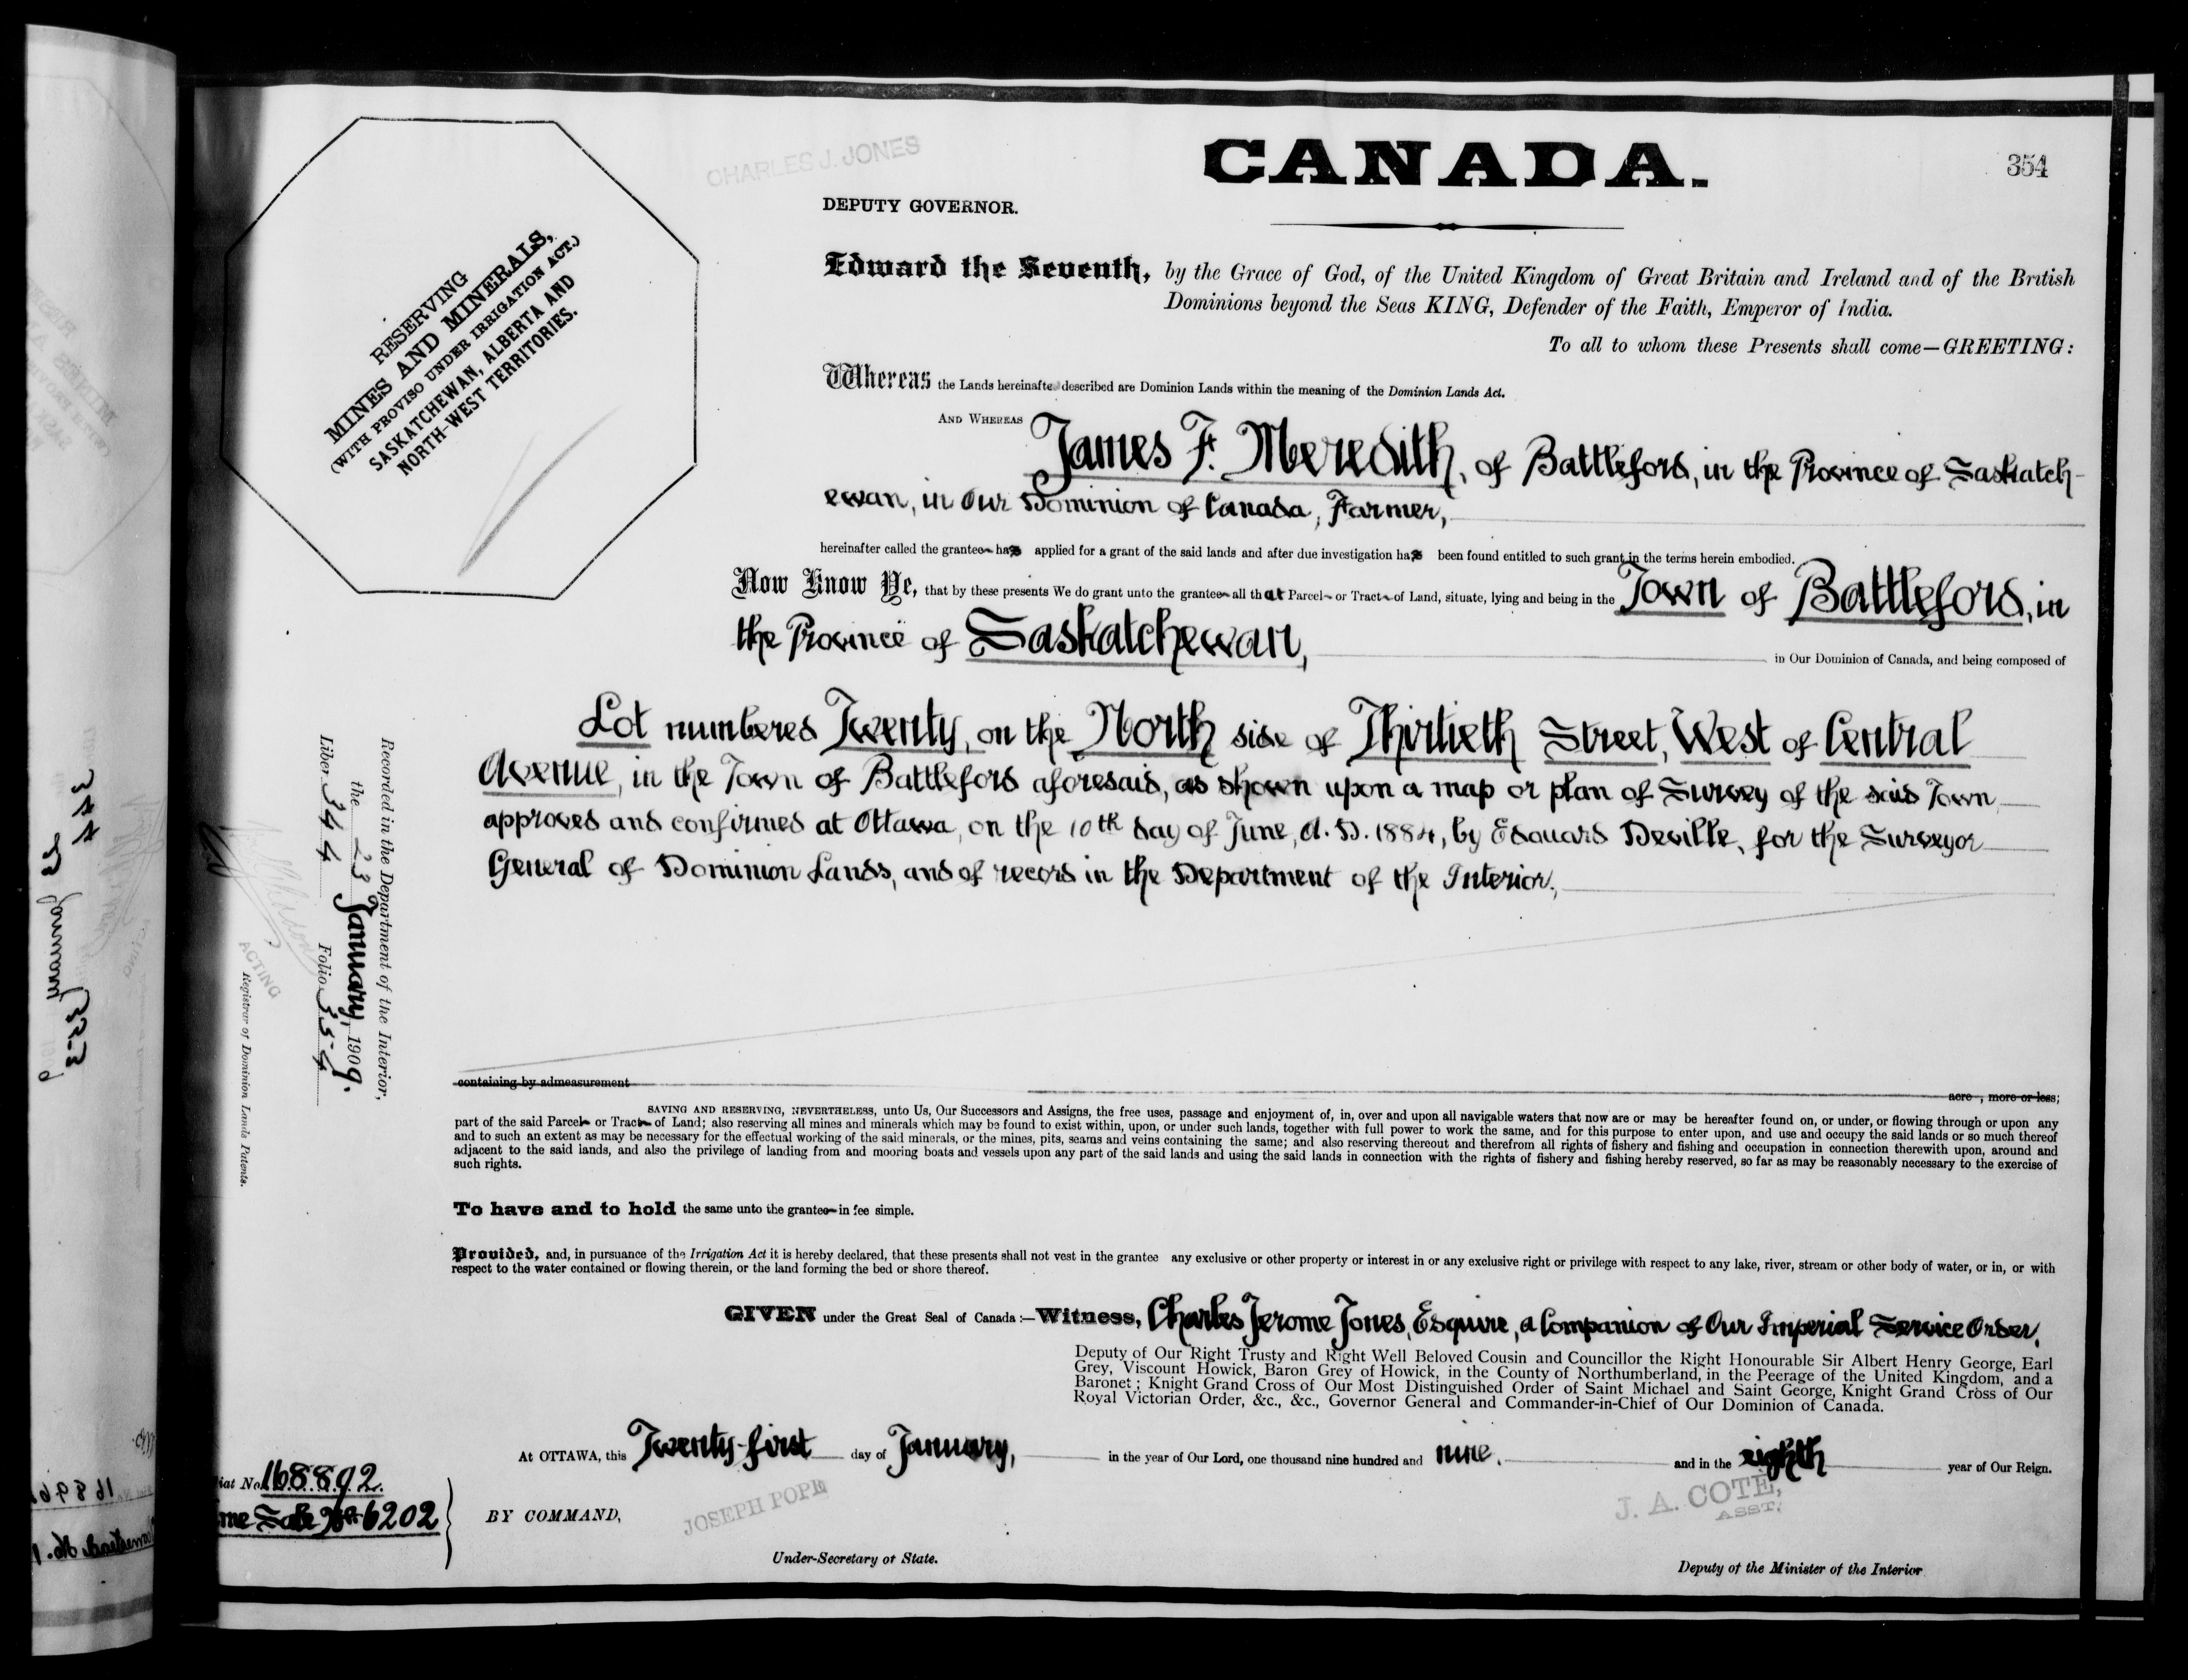 CHARLES J. JONES
CANADA.
354
DEPUTY GOVERNOR.
RESERVING
MINES AND MINERALS,
(WITH PROVISO UNDER IRRIGATION ACT.)
SASKATCHEWAN, ALBERTA AND
NORTH-WEST TERRITORIES.
Edward the Seventh, by the Grace of God, of the United Kingdom of Great Britain and Ireland and of the British
Dominions beyond the Seas KING, Defender of the Faith, Emperor of India.
To all to whom these Presents shall come—GREETING:
Whereas the Lands hereinafter described are Dominion Lands within the meaning of the Dominion Lands Act.
AND WHEREAS James F. Meredith, of Battleford, in the Province of Saskatch-
ewan, in Our Dominion of Canada, Farmer,
hereinafter called the grantee has applied for a grant of the said lands and after due investigation has been found entitled to such grant in the terms herein embodied.
Now Know Ye, that by these presents We do grant unto the grantee all that Parcel or Tract of Land, situate, lying and being in the Town of Battleford, in
the Province of Saskatchewan, in Our Dominion of Canada, and being composed of
Lot numbered Twenty, on the North side of Thirtieth Street, West of Central
Avenue, in the Town of Battleford aforesaid, as shown upon a map or plan of Survey of the said Town
approved and confirmed at Ottawa, on the 10th day of June, A.D. 1884, by Edouard Deville, for the Surveyor
General of Dominion Lands, and of record in the Department of the Interior.
Recorded in the Department of the Interior,
the 23 January, 1909.
Liber 344 Folio 354
ACTING
Registrar of Dominion Lands Patents.
containing by admeasurement acre , more or less;
SAVING AND RESERVING, NEVERTHELESS, unto Us, Our Successors and Assigns, the free uses, passage and enjoyment of, in, over and upon all navigable waters that now are or may be hereafter found on, or under, or flowing through or upon any
part of the said Parcel or Tract of Land; also reserving all mines and minerals which may be found to exist within, upon, or under such lands, together with full power to work the same, and for this purpose to enter upon, and use and occupy the said lands or so much thereof
and to such an extent as may be necessary for the effectual working of the said minerals, or the mines, pits, seams and veins containing the same; and also reserving thereout and therefrom all rights of fishery and fishing and occupation in connection therewith upon, around and
adjacent to the said lands, and also the privilege of landing from and mooring boats and vessels upon any part of the said lands and using the said lands in connection with the rights of fishery and fishing hereby reserved, so far as may be reasonably necessary to the exercise of
such rights.
To have and to hold the same unto the grantee in fee simple.
Provided, and, in pursuance of the Irrigation Act it is hereby declared, that these presents shall not vest in the grantee any exclusive or other property or interest in or any exclusive right or privilege with respect to any lake, river, stream or other body of water, or in, or with
respect to the water contained or flowing therein, or the land forming the bed or shore thereof.
GIVEN under the Great Seal of Canada:—Witness, Charles Jerome Jones, Esquire, a Companion of Our Imperial Service Order,
Deputy of Our Right Trusty and Right Well Beloved Cousin and Councillor the Right Honourable Sir Albert Henry George, Earl
Grey, Viscount Howick, Baron Grey of Howick, in the County of Northumberland, in the Peerage of the United Kingdom, and a
Baronet; Knight Grand Cross of Our Most Distinguished Order of Saint Michael and Saint George, Knight Grand Cross of Our
Royal Victorian Order, &c., &c., Governor General and Commander-in-Chief of Our Dominion of Canada.
At OTTAWA, this Twenty-first day of January, in the year of Our Lord, one thousand nine hundred and nine. and in the eighth year of Our Reign.
iat No. 168892.
me Sale No. 6202
BY COMMAND,
JOSEPH POPE
Under-Secretary of State.
J. A. COTÉ,
ASST.
Deputy of the Minister of the Interior